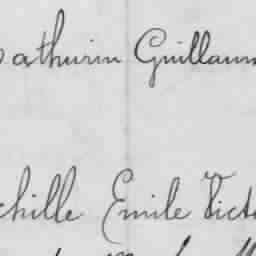 athurin Guillaum
chille Emile Vict